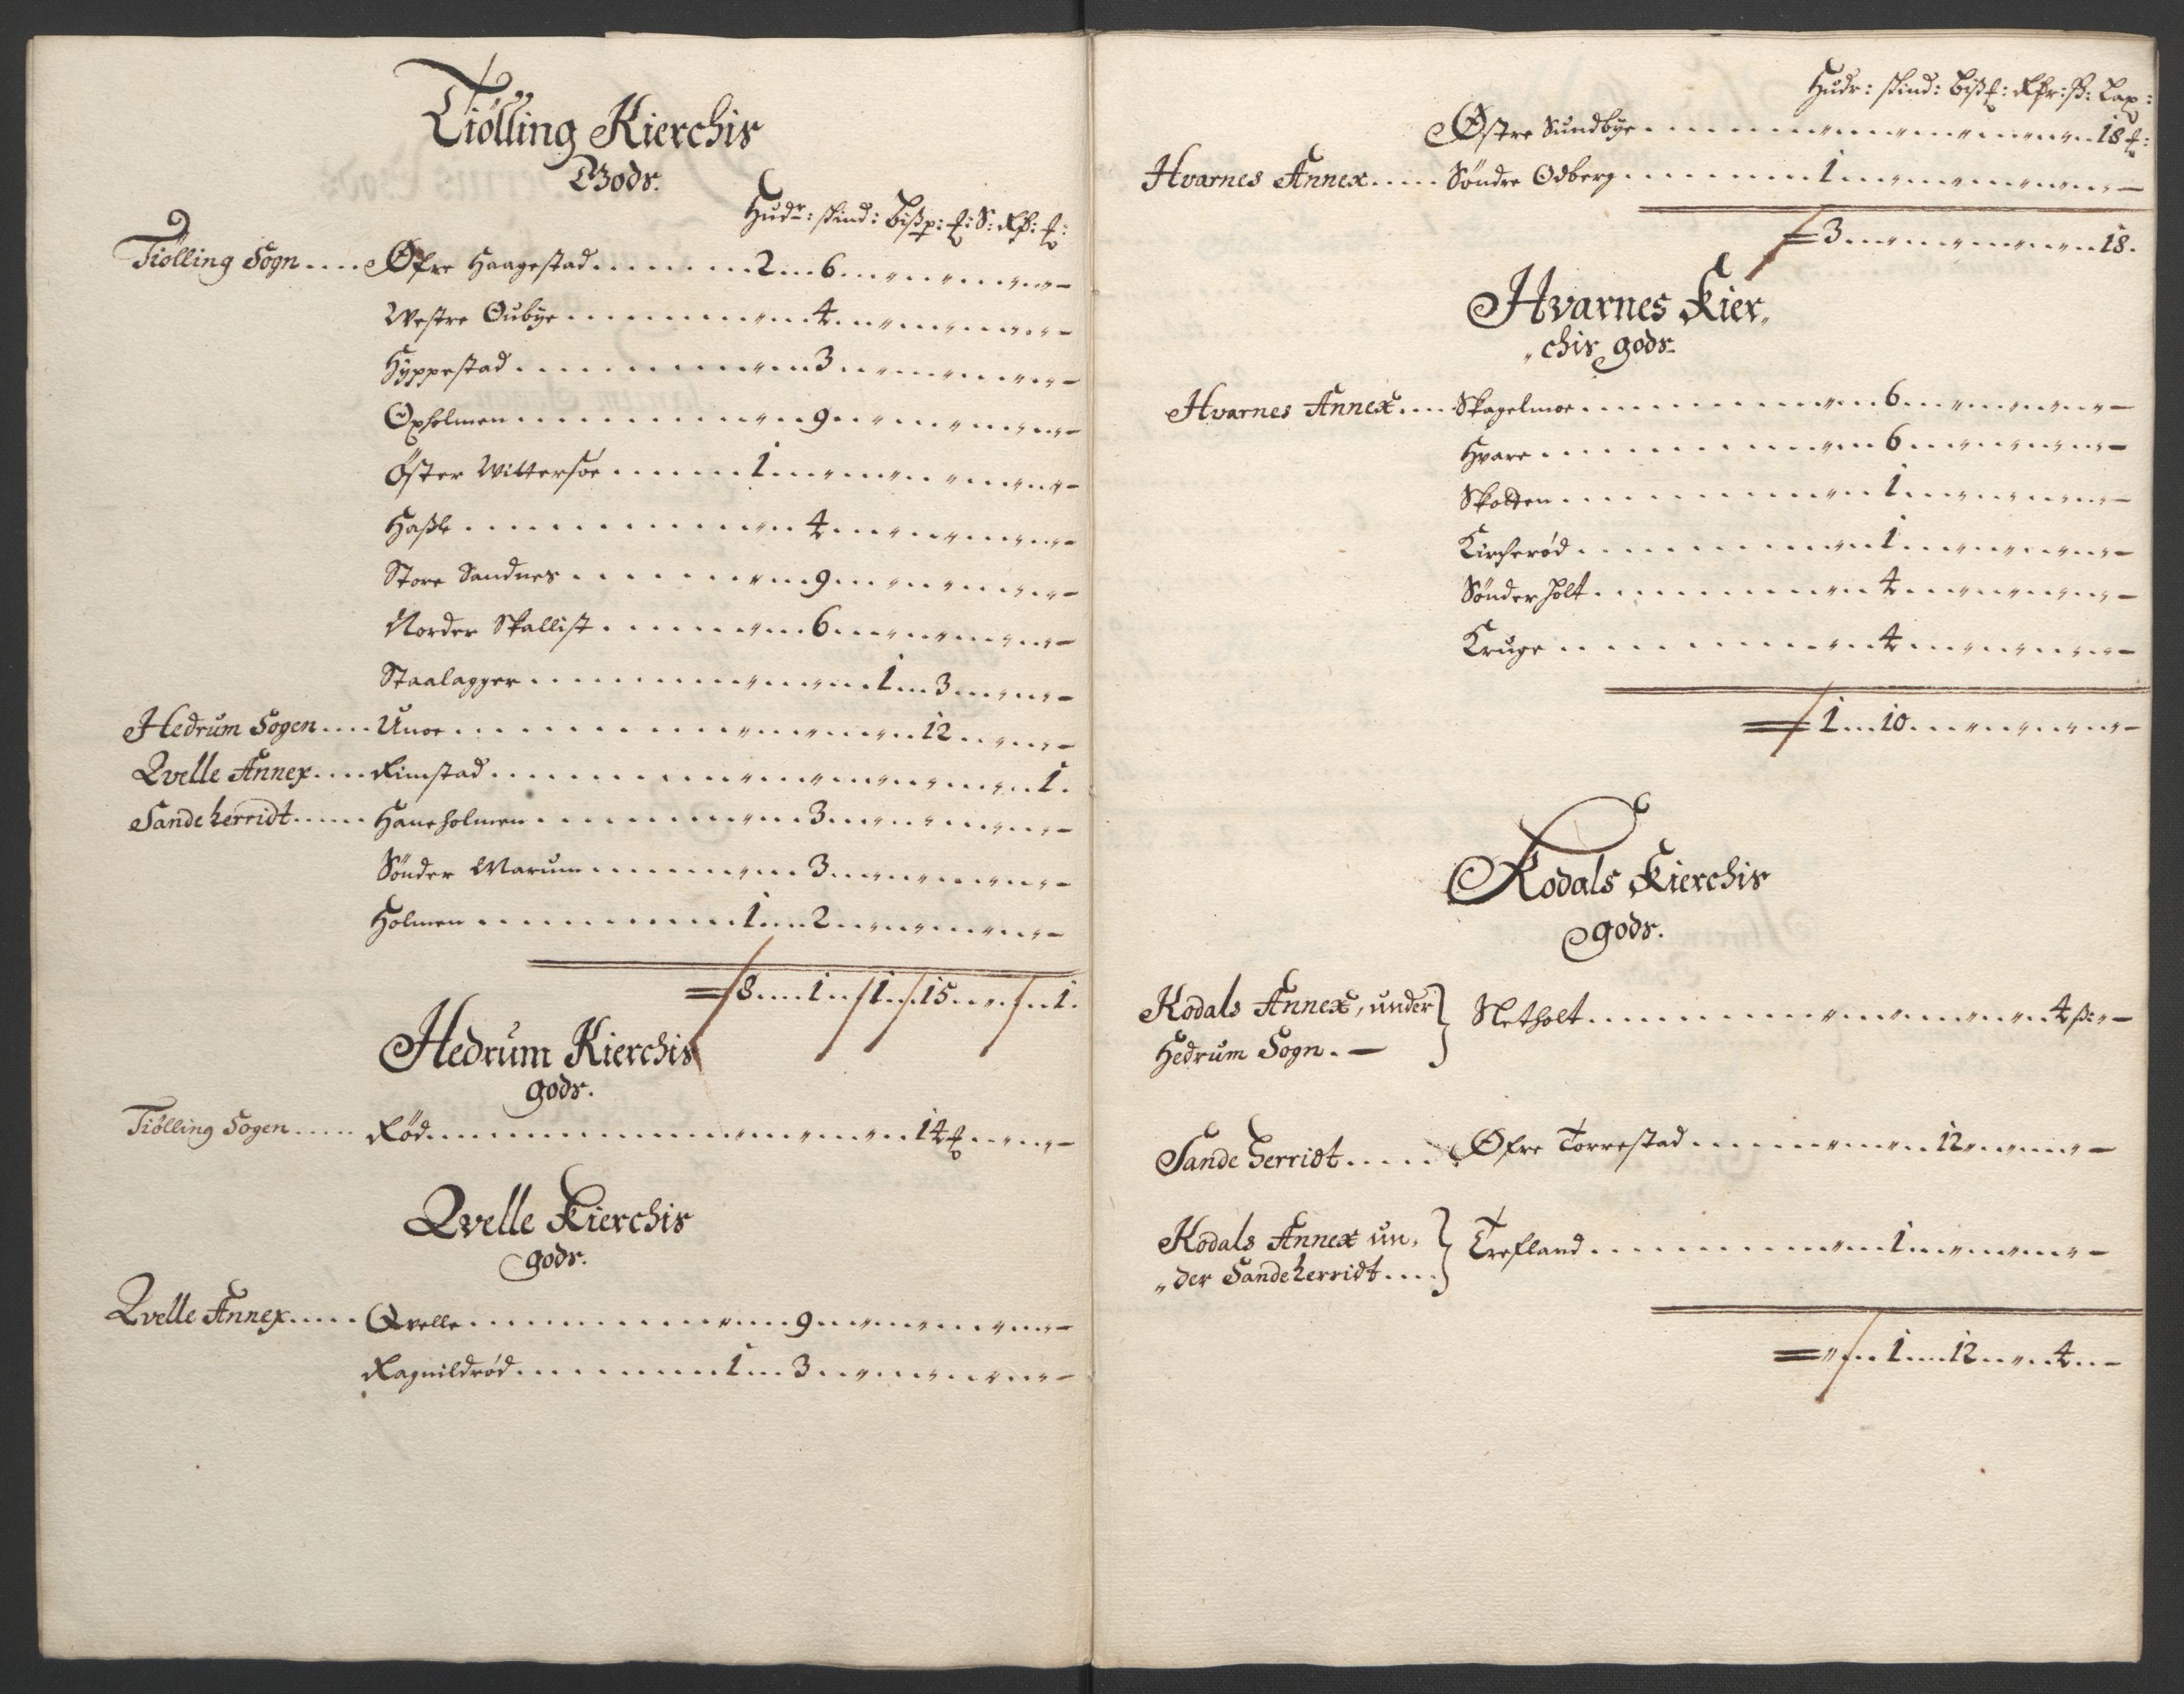 Tiølling Kierchis
Gods.
Hudr: skind: Bißp: ℔: S: Rß: ℔:
Tiølling Sogn .... Øfre Haagestad ........ 2 .. 6 .. " .. " .. " .. " .. " —
Westre Oubye ......... " .. 4 .. " .. " .. " .. " .. " —
Hyppestad .......... " .. 3 .. " .. " .. " .. " .. " —
Oxholmen .......... " .. 9 .. " .. " .. " .. " .. " —
Øster Wittersøe ...... 1 .. " .. " .. " .. " .. " .. " —
Haßle .......... " .. 4 .. " .. " .. " .. " .. " —
Store Sandnes ....... " .. 9 .. " .. " .. " .. " .. " —
Norder Skallist ...... " .. 6 .. " .. " .. " .. " .. " —
Staalagger .......... " .. " .. 1 .. 3 .. " .. " .. " —
Hedrum Sogen .... Unoe .......... " .. " .. " .. 12 .. " .. " .. " —
Qvelle Annex .... Rimstad .......... " .. " .. " .. " .. " .. " .. 1.
Sandeherridt ..... Haneholmen ......... " .. 3 .. " .. " .. " .. " .. " —
Sønder Marum ........ " .. 3 .. " .. " .. " .. " .. " —
Holmen .......... 1 .. 2 .. " .. " .. " .. " .. " —
= 8 .... 1 .. 1 .. 15 .. " .. " .. 1.
Hedrum Kierchis
gods.
Tiølling Sogen ..... Rød .......... " .. " .. " .. 14 ℔ .. " .. " —
Qvelle Kierchis
gods.
Qvelle Annex ..... Qvelle .......... " .. 9 .. " .. " .. " .. " .. " —
Ragnildrød .......... 1 .. 3 .. " .. " .. " .. " .. " —
Hudr: skind: Bißℓ: Rßr: ß: Lax:
Østre Sundbye ....... " .. " .. " .. " .. " .. 18 ℔:
Hvarnes Annex ..... Søndre Odberg ........ 1 .. " .. " .. " .. " .. " —
= 3 .. " .. " .. " .. " .. 18.
Hvarnes Kier„
„chis gods
Hvarnes Annex .... Skagelmoe .......... " .. 6 .. " .. " .. " .. " —
Hvare .......... " .. 6 .. " .. " .. " .. " —
Skotten .......... " .. 1 .. " .. " .. " .. " —
Kircherød .......... " .. 1 .. " .. " .. " .. " —
Sønderholt .......... " .. 4 .. " .. " .. " .. " —
Kruge .......... " .. 4 .. " .. " .. " .. " —
= 1 ... 10 .. " .. " .. " .. " —
Kodals Kierchis
gods.
Kodals Annex, under } Sletholt .......... " .. " .. " .. " .. 4 ß: " —
Hedrum Sogn. —
Sande herridt ..... Øfre Torrestad ......... " .. " .. 12 .. " .. " —
Kodals Annex un„ } Trefland .......... " .. 1 .. " .. " .. " —
„der Sandeherridt ....
= " .. 1 ... 12 .. " .. 4 .. —